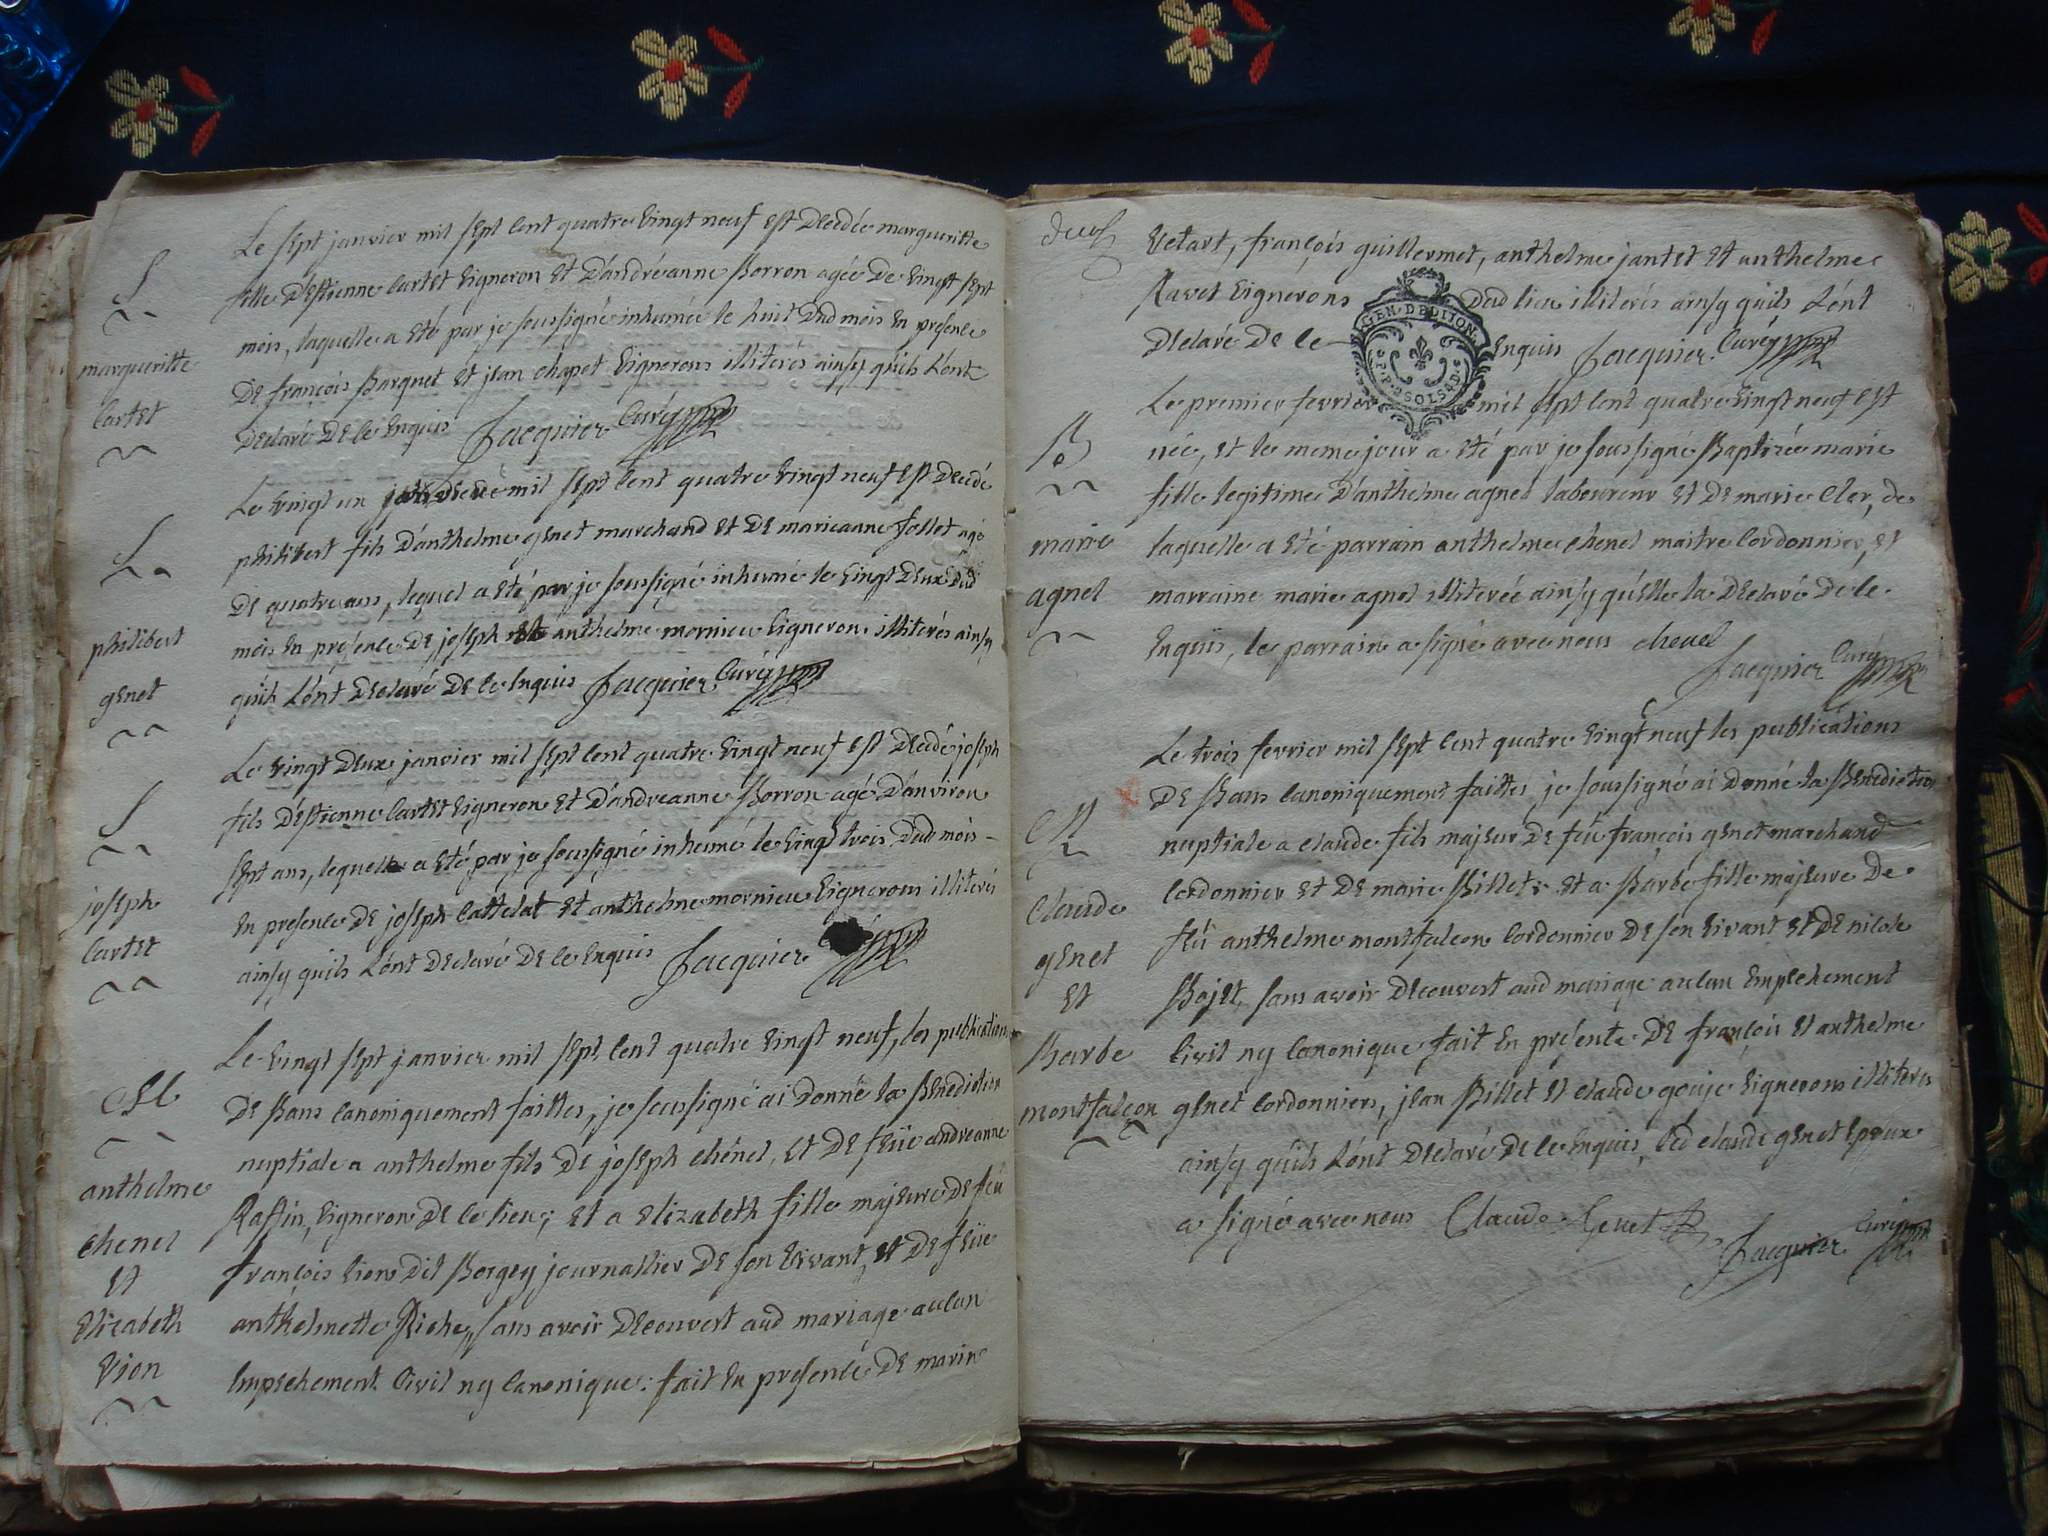 S
margueritte
Cartet
Le sept janvier mil sept cent quatre vingt neuf est decedée margueritte
fille d'estienne Cartet vigneron et d'andréanne Borron agée de vingt sept
mois, laquelle a eté par je soussigné inhumée le huit dud mois en presence
de françois Barquet et jean chapot vignerons illiterés ainsy quils l'ont
declaré de ce enquis Jacquier Curé
S
philibert
genet
Le vingt un mil sept cent quatre vingt neuf est decedé
philibert fils d'anthelme genet marchand et de marieanne follet agé
de quatre ans, lequel a eté par je soussigné inhumé le vingt deux dud
mois en présence de joseph et anthelme mornieu vigneron illiterés ainsy
quils l'ont declaré de ce enquis Jacquier Curé
S
joseph
Cartet
Le vingt deux janvier mil sept cent quatre vingt neuf est decedé joseph
fils d'estienne Cartet vigneron et d'andreanne Borron agé d'anviron
sept ans, lequelle a eté par je soussigné inhumé le vingt trois dud mois
en presence de joseph Cattelat et anthelme mornieu vignerons illiterés
ainsy quils l'ont declaré de ce enquis Jacquier
M
anthelme
chenel
et
Elizabeth
vion
Le vingt sept janvier mil sept cent quatre vingt neuf, les publications
de Bans canoniquement faittes, je soussigné ai donné la Benediction
nuptiale a anthelme fils de joseph chénel, et de feüe andreanne
Raffin, vigneron de ce lieu; et a Elizabeth fille majeure de feu
françois vion dit Bergey journallier de son vivant, et de feüe
anthelmette Riche, sans avoir decouvert aud mariage aucun
Empechement Civil ny Canonique: fait en presence de marin
deux
vetart, françois guillermet, anthelme jantet et anthelme
Ravet vignerons dud lieu illiterés ainsy quils l'ont
declaré de ce enquis Jacquier Curé
GEN. DE DIJON
P.P. 2 SOLS 4 D.
B
marie
agnel
Le premier fevrier mil sept cent quatre vingt neuf est
née, et le meme jour a eté par je soussigné Baptizée marie
fille legitime d'anthelme agnel laboureur et de marie Cler, de
laquelle a eté parrain anthelme chenel maitre Cordonnier, et
marraine marie agnel illiterée ainsy qu'elle la declaré de ce
enquis, le parrain a signé avec nous chenel
Jacquier Curé
M
Claude
genet
et
Barbe
montfalcon
Le trois fevrier mil sept cent quatre vingt neuf les publications
de Bans canoniquement faittes, je soussigné ai donné la Benediction
nuptiale a claude fils majeur de feû françois genet marchand
cordonnier et de marie Billet et a Barbe fille majeure de
feû anthelme montfalcon cordonnier de son vivant et de nicole
Bojet, sans avoir decouvert aud mariage aucun Empechement
Civil ny Canonique fait en présence de françois et anthelme
genet cordonniers, jean Billet et claude gouje vignerons illiterés
ainsy quils l'ont declaré de ce enquis, led claude genet epoux
a signé avec nous Claude Genet
Jacquier Curé